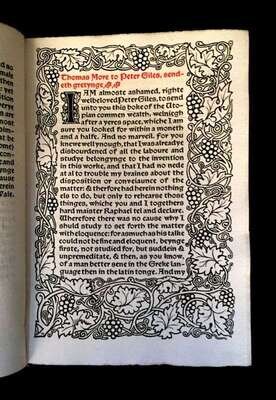 Thomas More to Peter Giles, send-
eth gretynge.
I AM almoste ashamed, righte
welbeloved Peter Giles, to send
unto you this boke of the Uto-
pian common wealth, weiniegh
after a yeres space, whiche I am
sure you looked for within a moneth
and a halfe. And no marveil. For you
knewe well ynough, that I was alreadye
disbourdened of all the laboure and
studye belongynge to the invention
in this worke, and that I had no nede
at al to trouble my braines about the
disposition or conveiaunce of the
matter: & therfore had herein nothing
els to do, but only to rehearse those
thinges, whiche you and I togethers
hard maister Raphael tel and declare.
Wherefore there was no cause why I
should study to set forth the matter
with eloquence: forasmuch as his talke
could not be fine and eloquent, beynge
firste, not studied for, but suddein &
unpremeditate, & then, as you know,
of a man better sene in the Greke lan-
guage then in the latin tonge. And my